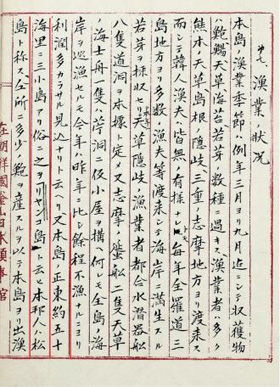 第七 漁業ノ状况
本島ノ漁業季節ハ例年三月ヨリ九月迄ニシテ収獲物
ハ鮑鱶天草海苔若芽ノ数種ニ過キス漁業者ハ多ク
熊本ノ天草島根ノ隠岐三重ノ志摩地方ヨリ渡来ス
而シテ韓人漁夫ハ皆無ノ有様ナレトモ毎年全羅道三
島地方ヨリ多数ノ漁夫等渡来シテ海岸ニ満生スル
若芽ヲ採収セリ天草隠岐ノ漁業者都合水潜器船
八隻道洞ヲ本據ト定メ又志摩ノ蜑船二隻天草
ノ海士舟二隻竹洞ニ仮小屋ヲ構ヘ何レモ全島海
岸ヲ巡漁セルモ今年ハ昨年ニ比シ餘程不漁ナルニヨリ
利潤多カラザル見込ナリト云ヘリ又本島ノ正東約五十
海里ニ三小島アリ俗ニ之ヲリヤンコ島ト云ヒ本邦人ハ松
島ト称ス全所ニ多少ノ鮑ヲ産スルヲ以テ本島ヨリ出漁
在朝鮮國釜山日本領事官